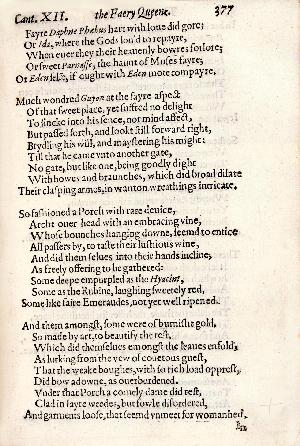 Cant. XII. the Faery Queene. 377
Fayre Daphne Phœbus hart with loue did gore;
Or Ida, where the Gods lou'd to repayre,
When euer they their heauenly bowres forlore;
Or sweet Parnasse, the haunt of Muses fayre;
Or Eden selfe, if ought with Eden mote compayre.
Much wondred Guyon at the fayre aspect
Of that sweet place, yet suffred no delight
To sincke into his sence, nor mind affect,
But passed forth, and lookt still forward right,
Brydling his will, and maystering his might:
Till that he came vnto another gate,
No gate, but like one, being goodly dight
With bowes and braunches, which did broad dilate
Their clasping armes, in wanton wreathings intricate.
So fashioned a Porch with rare deuice,
Archt ouer head with an embracing vine,
Whose bounches hanging downe, seemd to entice
All passers by, to taste their lushious wine,
And did them selues into their hands incline,
As freely offering to be gathered:
Some deepe empurpled as the Hyacint,
Some as the Rubine, laughing sweetely red,
Some like faire Emeraudes, not yet well ripened.
And them amongst, some were of burnisht gold,
So made by art, to beautify the rest,
Which did themselues emongst the leaues enfold,
As lurking from the vew of couetous guest,
That the weake boughes, with so rich load opprest,
Did bow adowne, as ouerburdened.
Vnder that Porch a comely dame did rest,
Clad in fayre weedes, but fowle disordered,
And garments loose, that seemd vnmeet for womanhed.